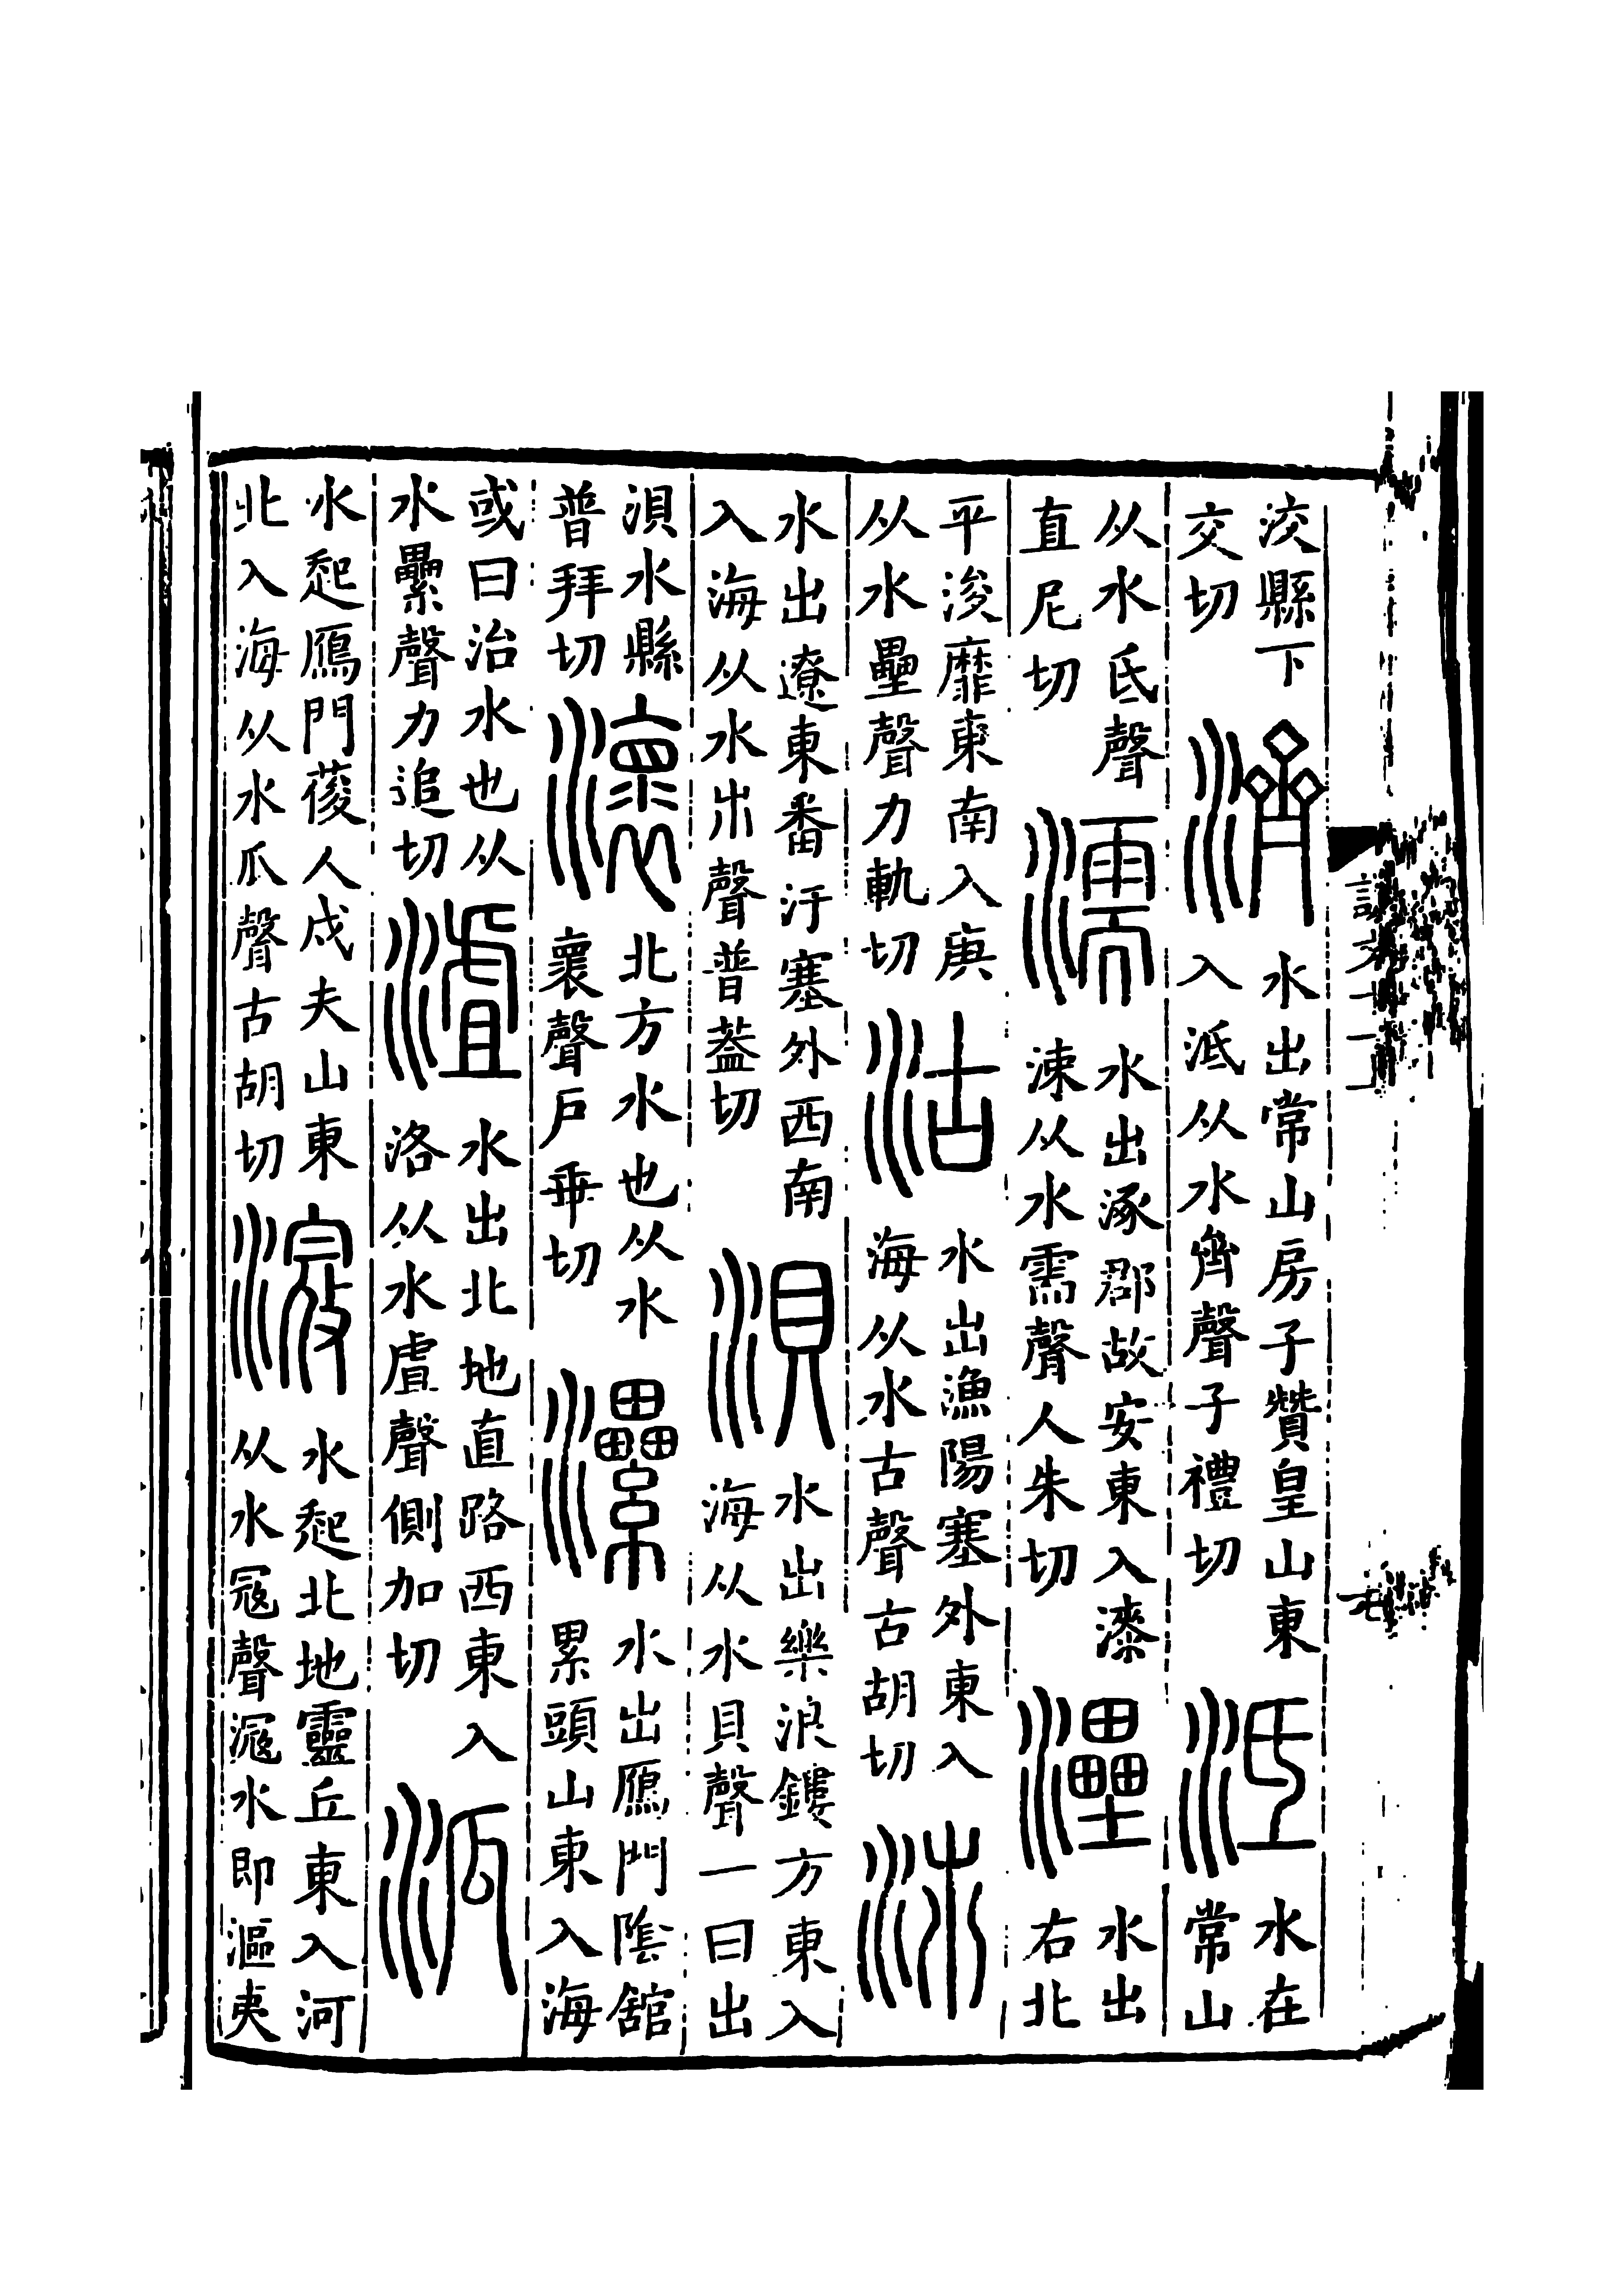 洨縣下
交切
濟
水出常山房子贊皇山東
入泜从水齊聲子禮切
泜
水在
常山
从水氐聲
直尼切
濡
水出涿郡故安東入漆
涑从水需聲人朱切
灅
水出
右北
平浚靡東南入庚
从水壘聲力軌切
沽
水出漁陽塞外東入
海从水古聲古胡切
沛
水出遼東番汙塞外西南
入海从水巿聲普蓋切
浿
水出樂浪鏤方東入
海从水貝聲一曰出
浿水縣
普拜切
瀤
北方水也从水
褱聲戶乖切
灢
水出鴈門陰館
累頭山東入海
或曰治水也从
水纍聲力追切
澬
水出北地直路西東入
洛从水虘聲側加切
泒
水起鴈門葰人戍夫山東
北入海从水瓜聲古胡切
滱
水起北地靈丘東入河
从水寇聲滱水即漚夷
說文十一上